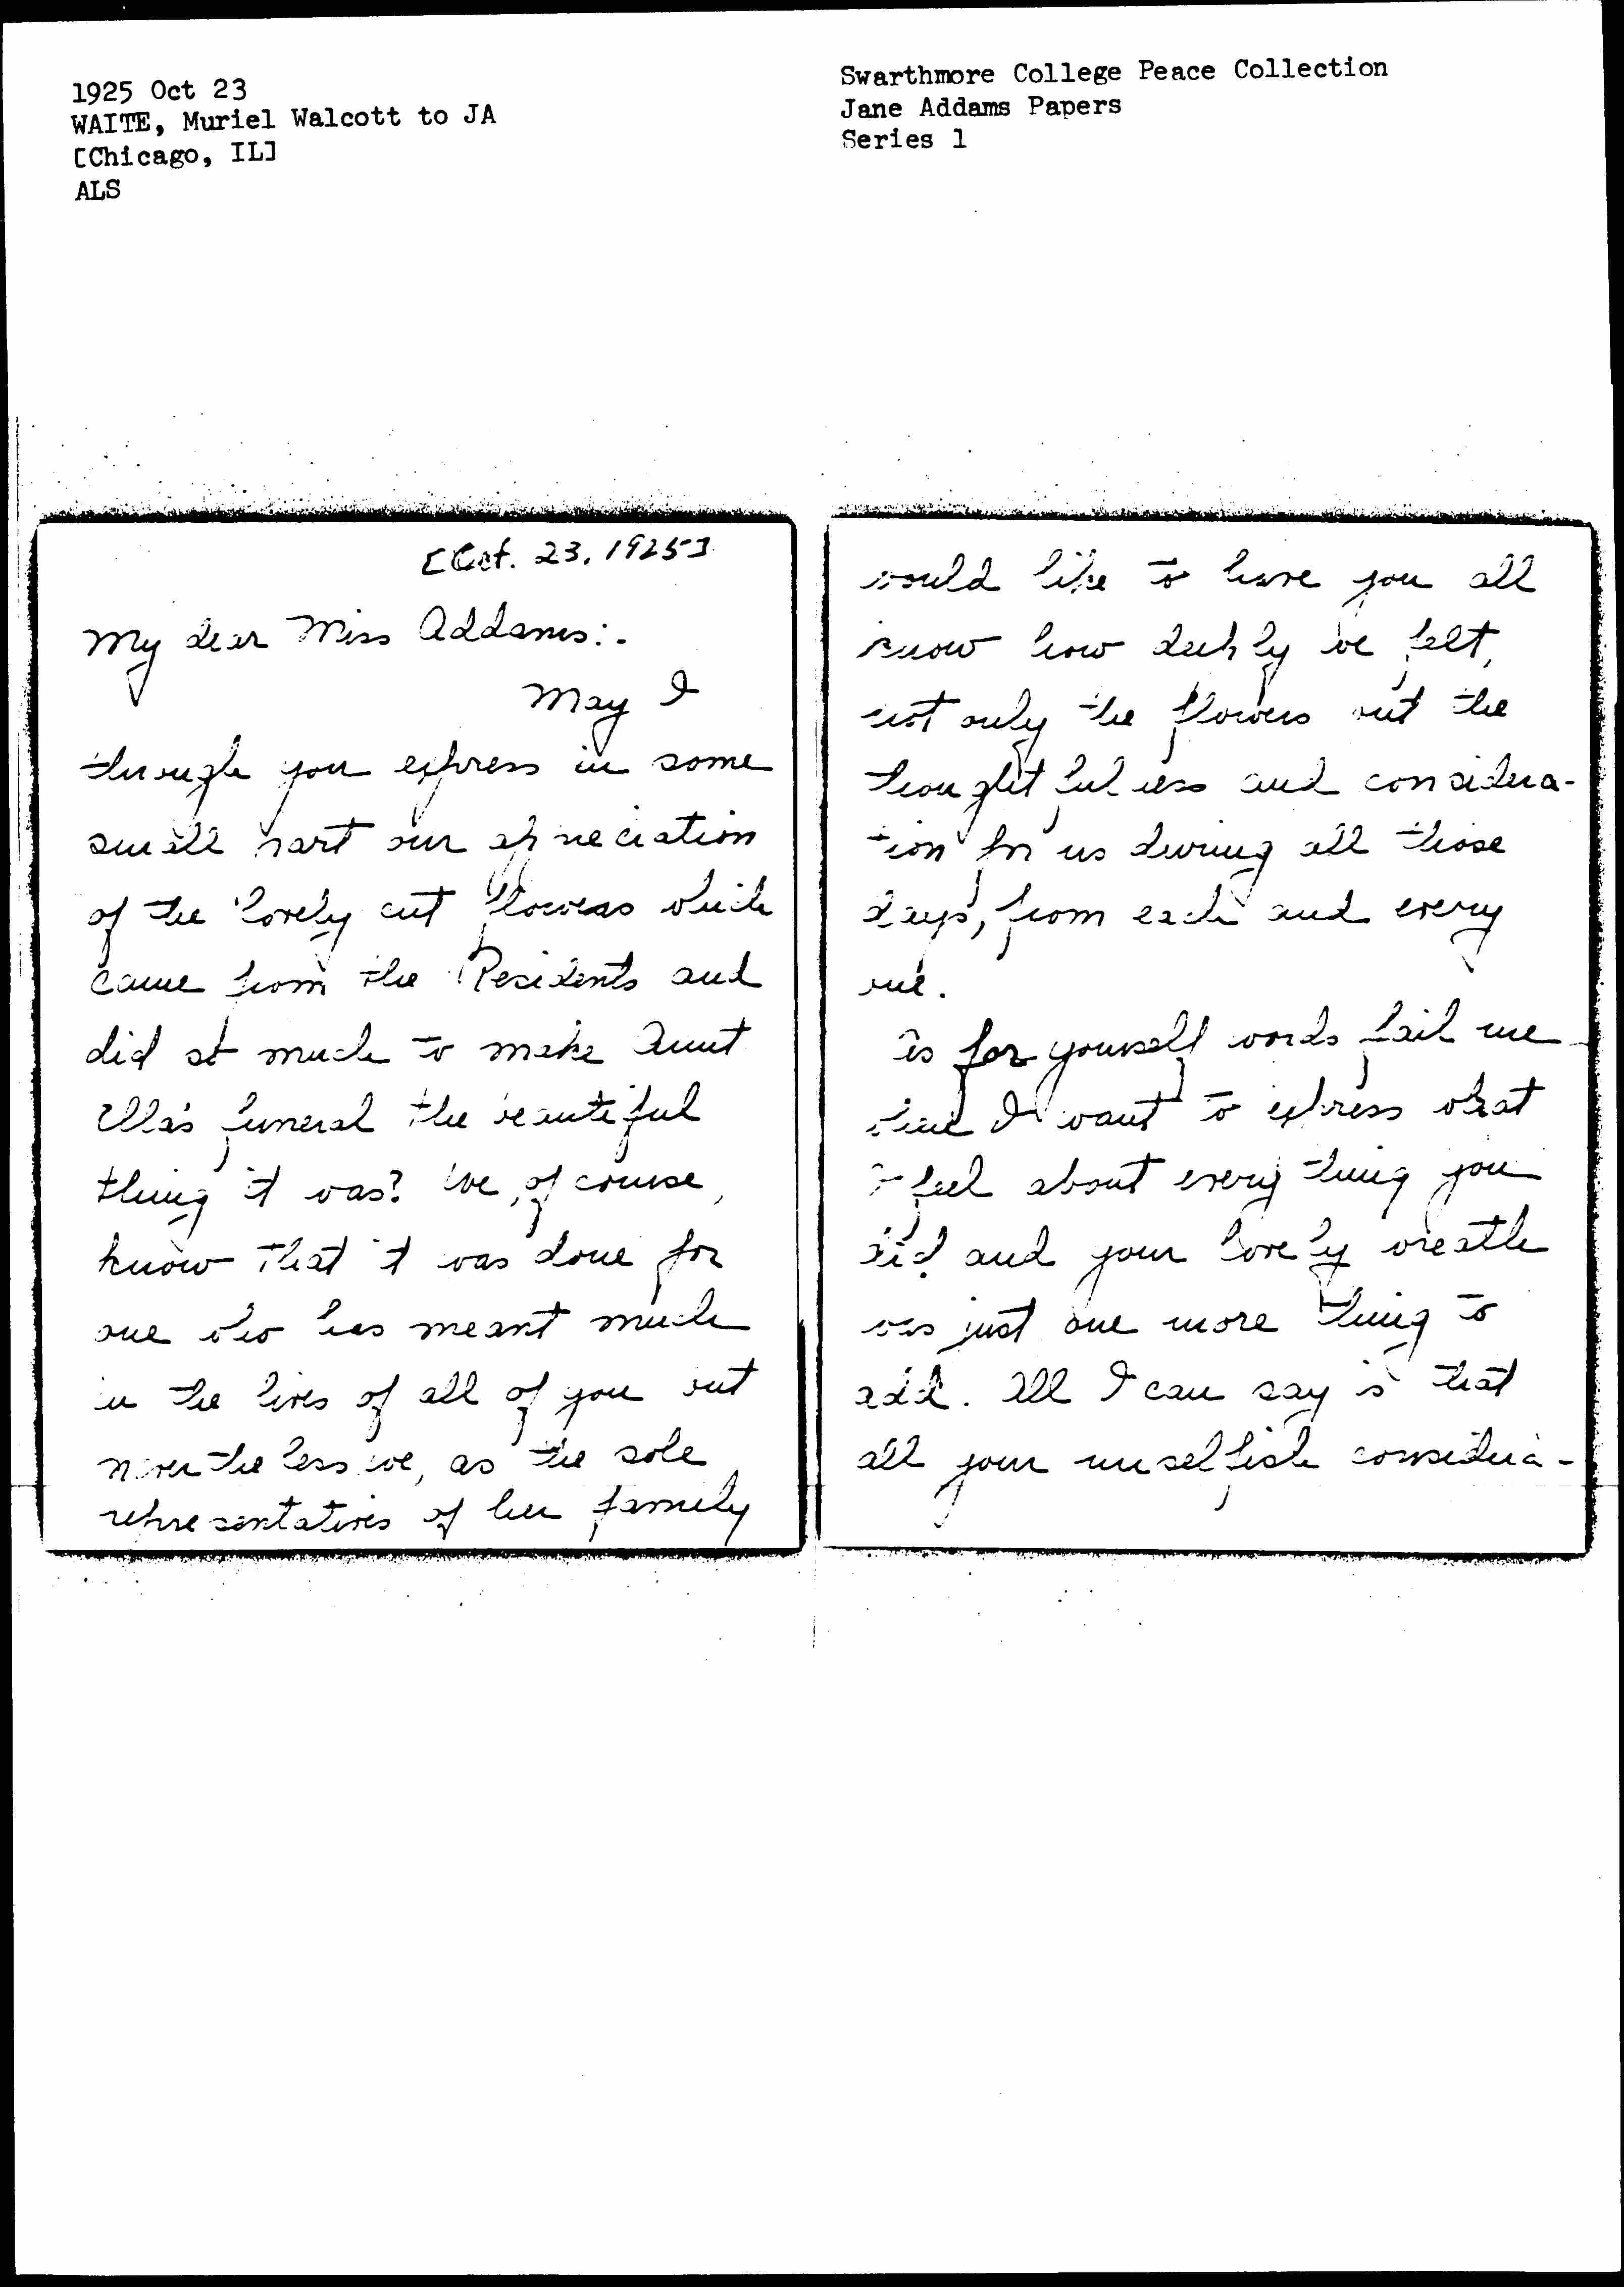 1925 Oct 23
WAITE, Muriel Walcott to JA
[Chicago, IL]
ALS
Swarthmore College Peace Collection
Jane Addams Papers
Series 1
[Oct. 23, 1925]
My dear Miss Addams:-
May I
through you express in some
small part our appreciation
of the lovely cut flowers which
came from the Residents and
did so much to make Aunt
Ella's funeral the beautiful
thing it was? We, of course,
know that it was done for
one who has meant much
in the lives of all of you but
never the less we, as the sole
representatives of her family
would like to have you all
know how deeply we felt,
not only the flowers but the
thoughtfulness and considera-
tion for us during all those
days, from each and every
one.
As for yourself words fail me
when I want to express what
I feel about every thing you
did and your lovely wreath
was just one more thing to
add. All I can say is that
all your unselfish considera-